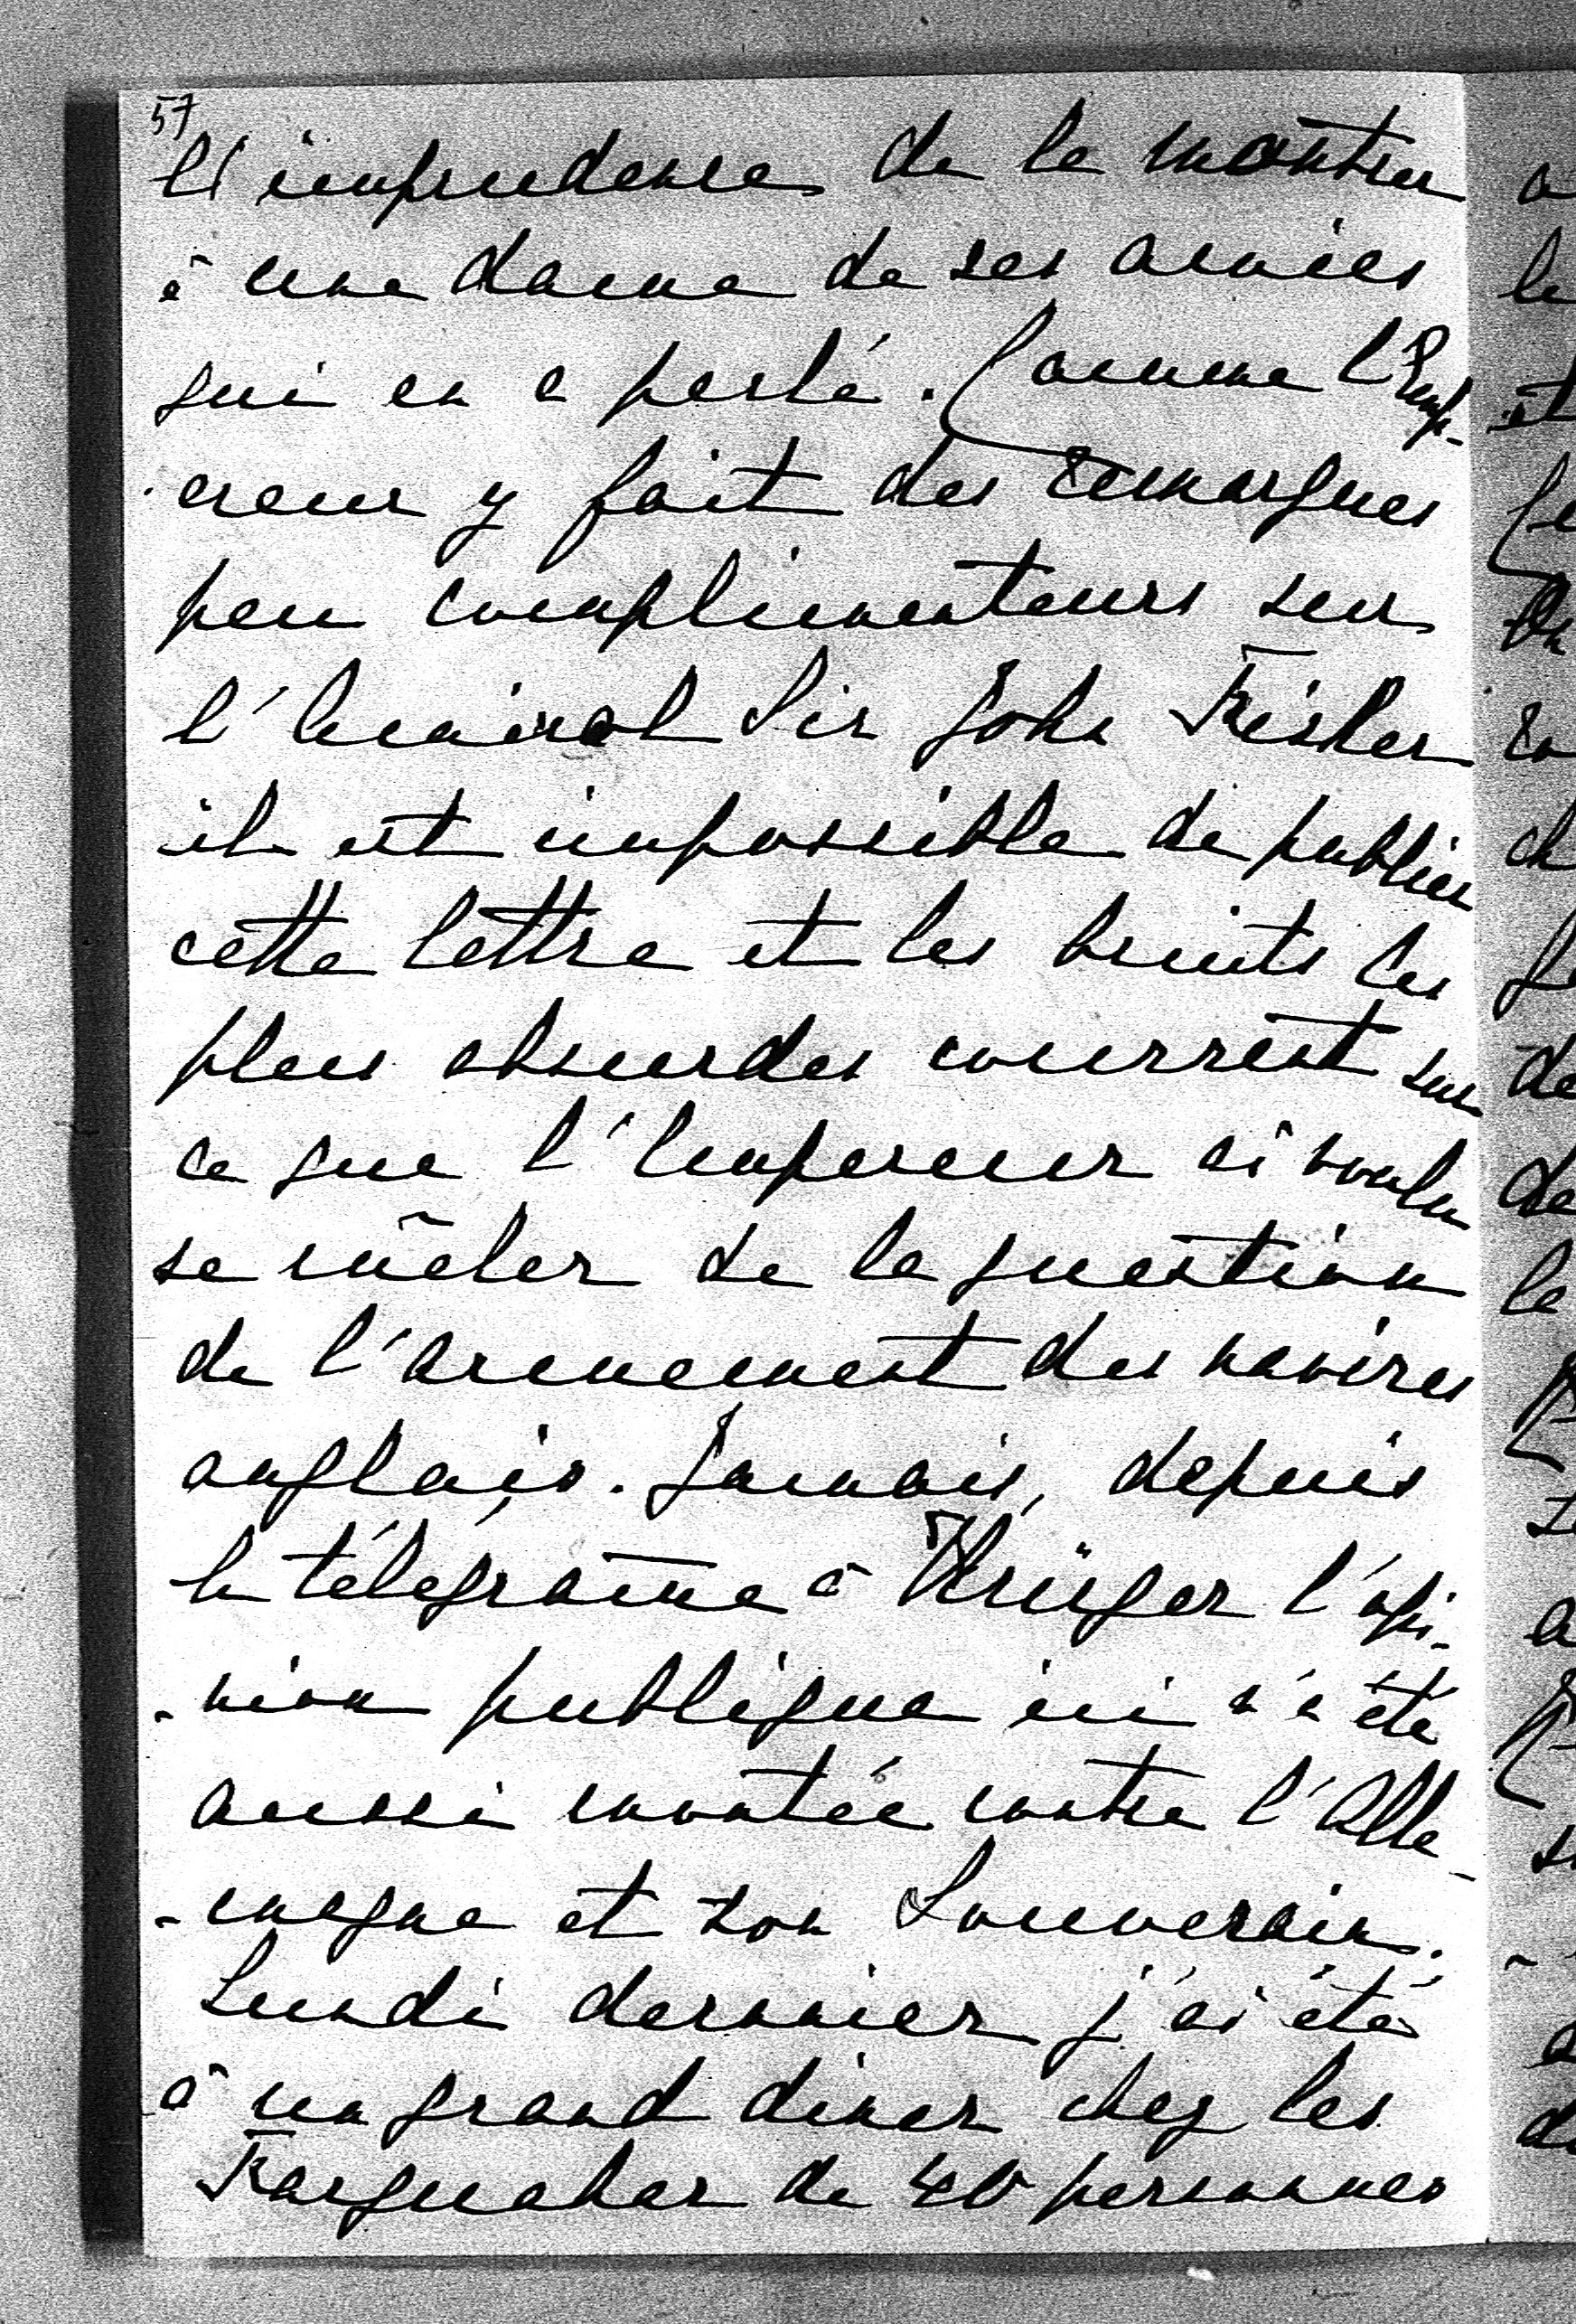 57
l'imprudence de la montrer
à une dame de ses amies
qui en a parlé. Comme l'Emp-
-ereur y fait des remarques
peu complimenteurs sur
l'Amiral Sir John Fisher
il est impossible de publier
cette lettre et les bruits les
plus absurdes courrent sur
ce que l'Empereur ai voulu
se mêler de la question
de l'armement des navires
anglais. Jamais, depuis
le télégramme à Krüger l'opi-
-nion publique ici n'a été
aussi montée contre l'Alle-
-magne et son Souverain.
Lundi dernier j'ai été
à un grand diner chez les
Farquahar de 40 personnes